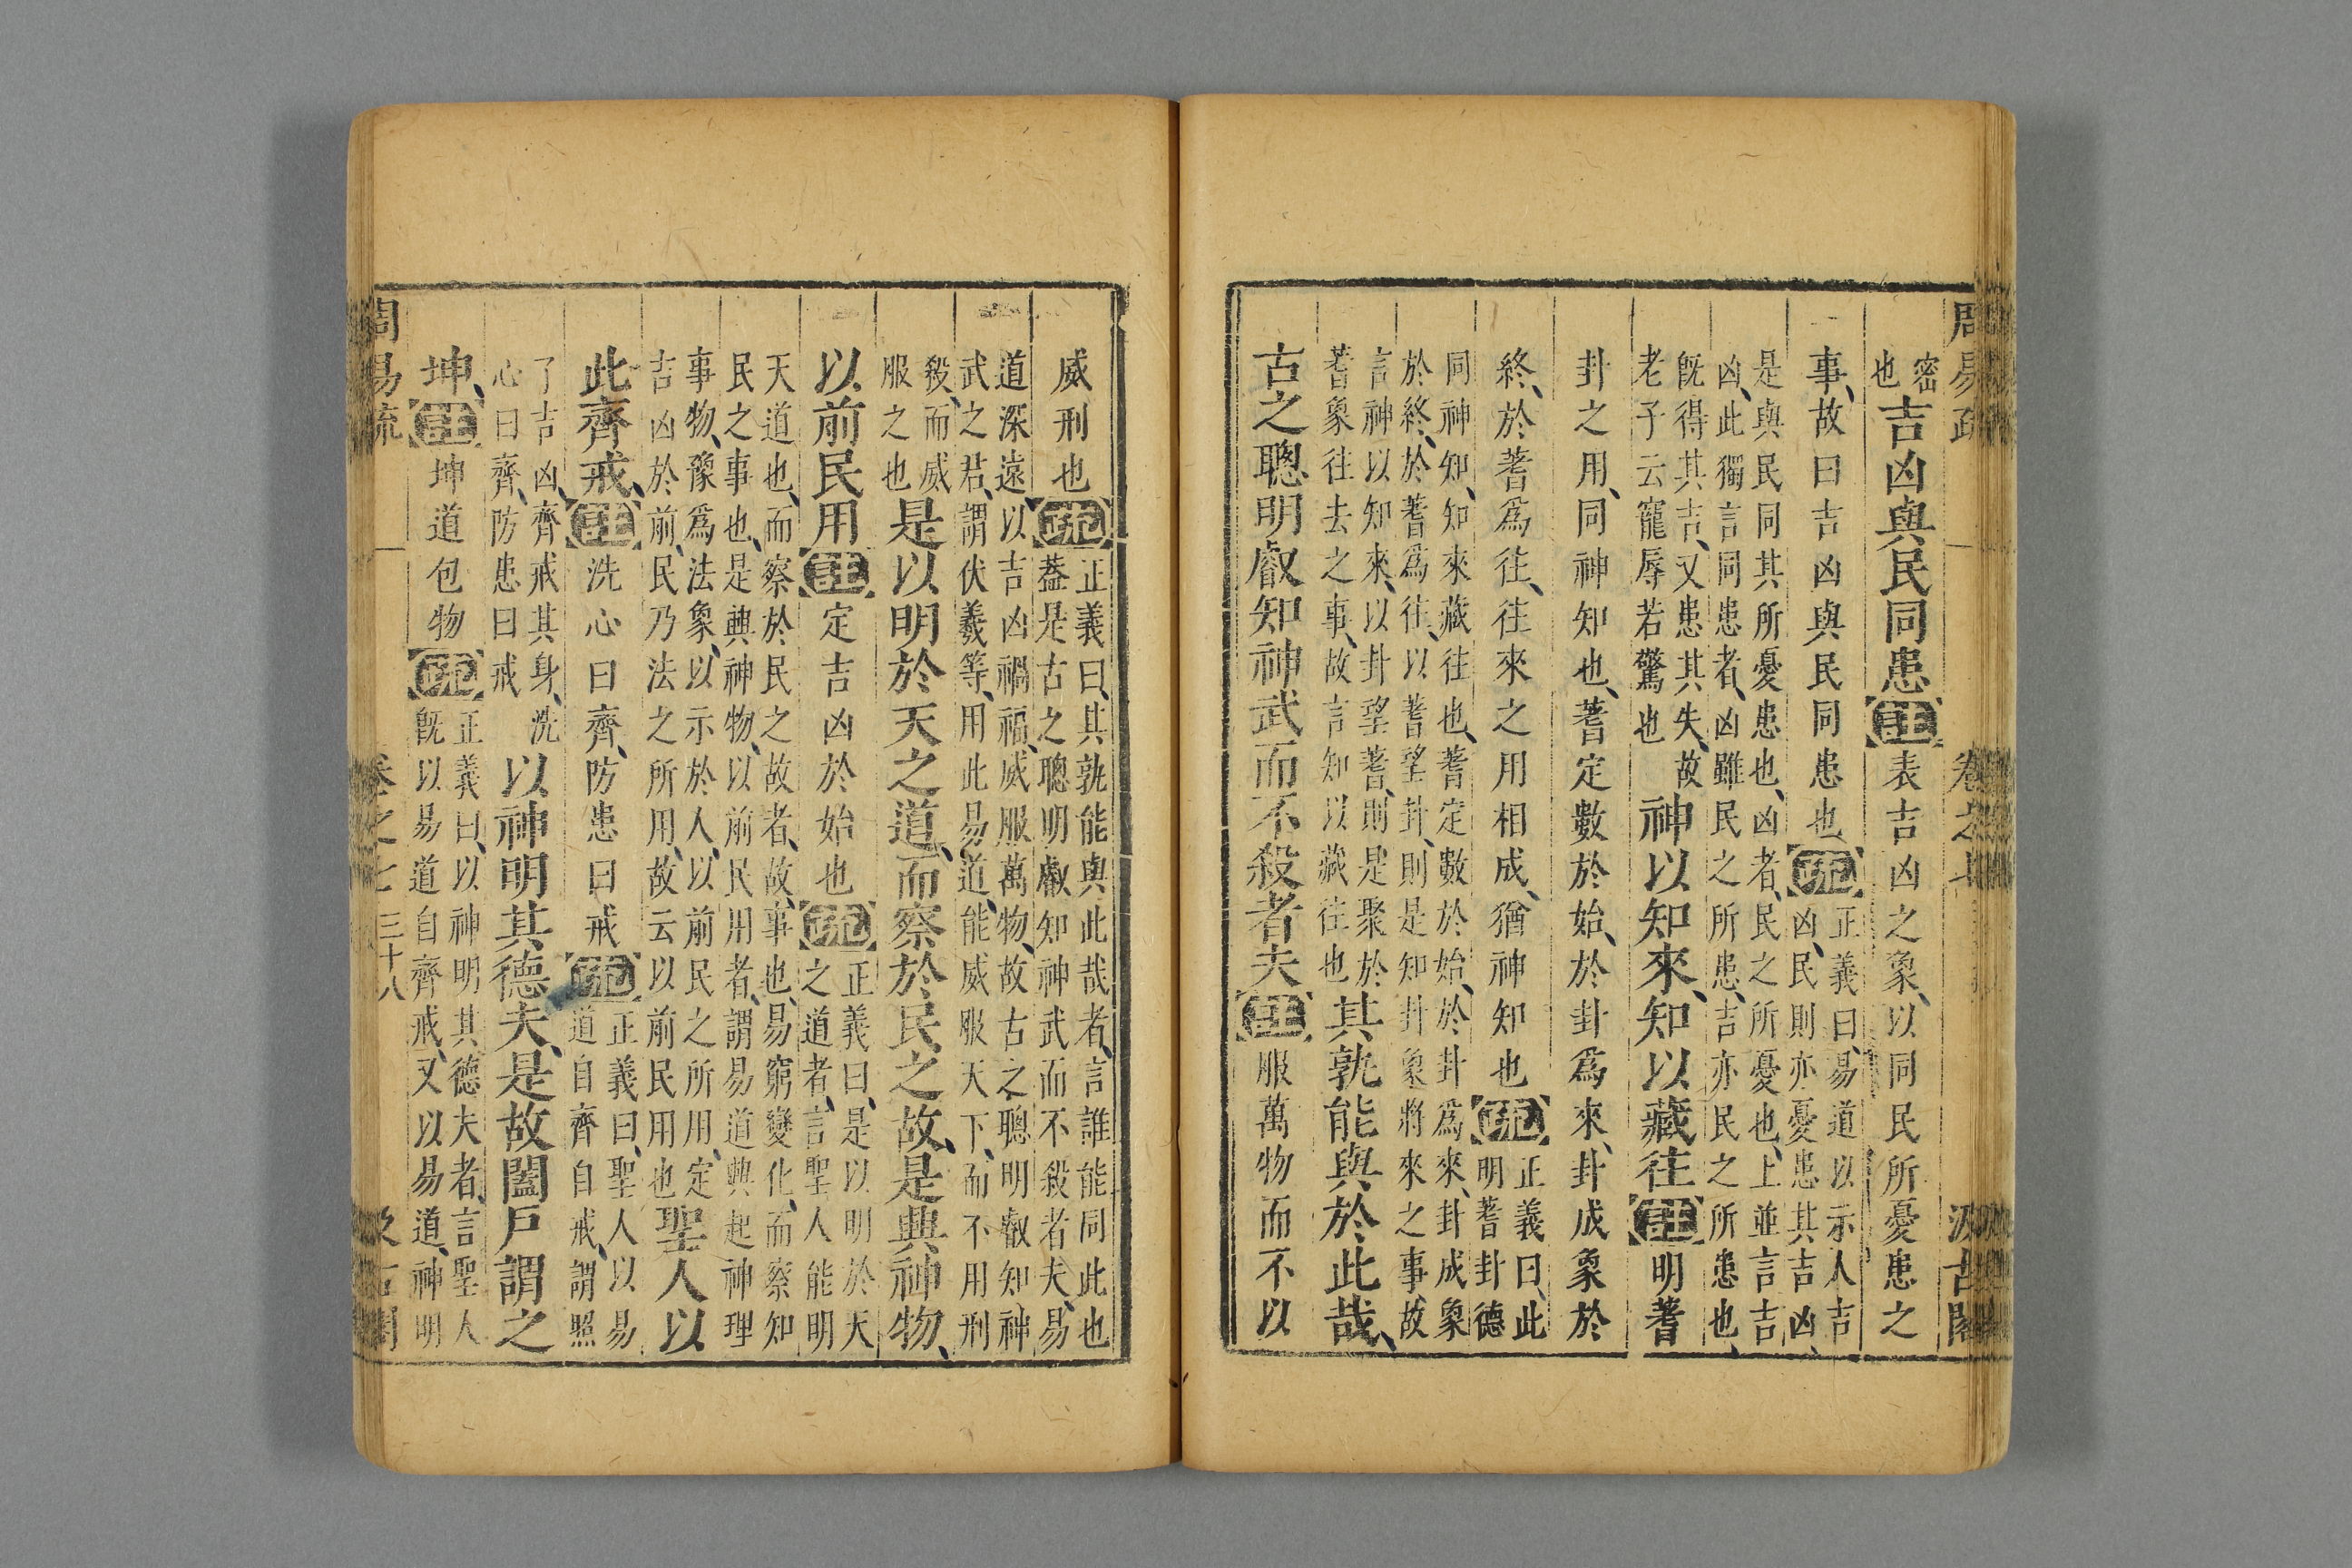 周易疏 卷之七 汲古閣
密也吉凶與民同患註表吉凶之象、以同民所憂患之
事、故曰吉凶與民同患也疏正義曰、易道以示人吉凶、民則亦憂患其吉凶、
是與民同其所憂患也、凶者、民之所憂也、上並言吉凶、此獨言同患者、凶雖民之所患、吉亦民之所患也、
旣得其吉、又患其失、故老子云寵辱若驚也神以知來、知以藏往註明蓍
卦之用、同神知也、蓍定數於始、於卦爲來、卦成象於
終、於蓍爲往、往來之用相成、猶神知也疏正義曰、此明蓍卦德
同神知、知來藏往也、蓍定數於始、於卦爲來、卦成象於終、於蓍爲往、以蓍望卦、則是知卦象將來之事、故
言神以知來、以卦望蓍、則是聚於蓍象往去之事、故言知以藏往也其孰能與於此哉、
古之聰明叡知神武而不殺者夫註服萬物而不以
威刑也疏正義曰、其孰能與此哉者、言誰能同此也蓋是古之聰明叡知神武而不殺者夫、易
道深遠、以吉凶禍福、威服萬物、故古之聰明叡知神武之君、謂伏羲等、用此易道、能威服天下、而不用刑
殺、而威服之也是以明於天之道、而察於民之故、是興神物、
以前民用註定吉凶於始也疏正義曰、是以明於天之道者、言聖人能明
天道也、而察於民之故者、故、事也、易窮變化、而察知民之事也、是興神物、以前民用者、謂易道興起神理
事物、豫爲法象、以示於人、以前民之所用、定吉凶於前、民乃法之所用、故云以前民用也聖人以
此齊戒、註洗心曰齊、防患曰戒疏正義曰、聖人以易道自齊自戒、謂照
了吉凶、齊戒其身、洗心曰齊、防患曰戒以神明其德夫、是故闔戶謂之
坤、註坤道包物疏正義曰、以神明其德夫者、言聖人旣以易道自齊戒、又以易道、神明
周易疏 卷之七 三十八 汲古閣